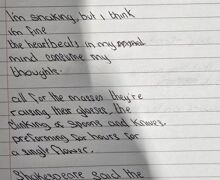 I'm shaking, but I think
I'm fine
the heartbeats in my
mind consume my
thoughts.
all for the masses they're
raising their glasses, the
clinking of spoons and knives.
preforming for hours for
a single flower.
Shakespeare said the